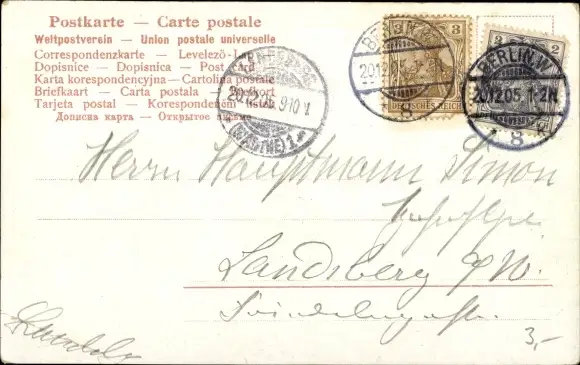 Postkarte – Carte postale
Weltpostverein – Union postale universelle
Correspondenzkarte – Levelező-L
Dopisnice – Dopisnica – Post card
Karta korespondencyjna – Cartolina postale
Briefkaart – Carta postala
Tarjeta postal – Korespondent
Дописна карта – Открытое письмо
3 3
DEUTSCHES REICH
3 2
BERLIN.W.
20.12.05.
8
BERLIN.W.
20.12.05.1-2N.
8
(WARTHE) 1
Herrn Hauptmann Simon
Landsberg a/W.
3,-